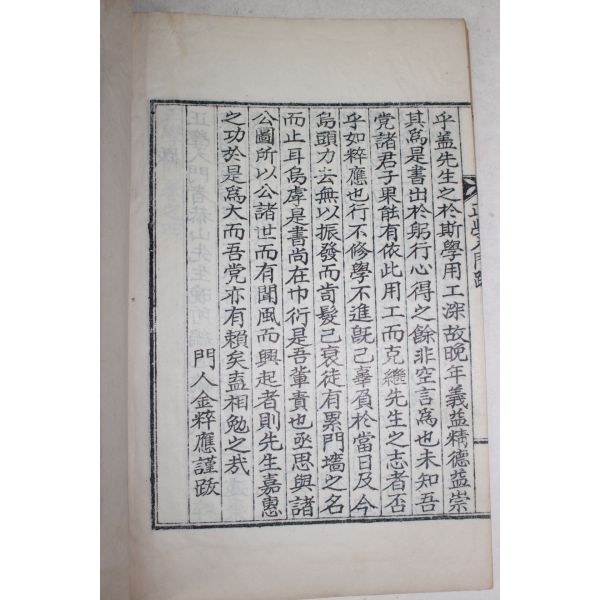 乎盖先生之於斯學用工深故晩年義益精德益崇
其爲是書出於躬行心得之餘非空言爲也未知吾
党諸君子果能有依此用工而克繼先生之志者否
乎如粹應也行不修學不進旣已辜負於當日及今
烏頭力去無以振發而齒髮已衰徒有累門墻之名
而止耳烏虖是書尚在巾衍是吾輩責也亟思與諸
公圖所以公諸世而有聞風而興起者則先生嘉惠
之功於是爲大而吾党亦有賴矣盍相勉之㢤
門人金粹應謹跋
正學入門跋